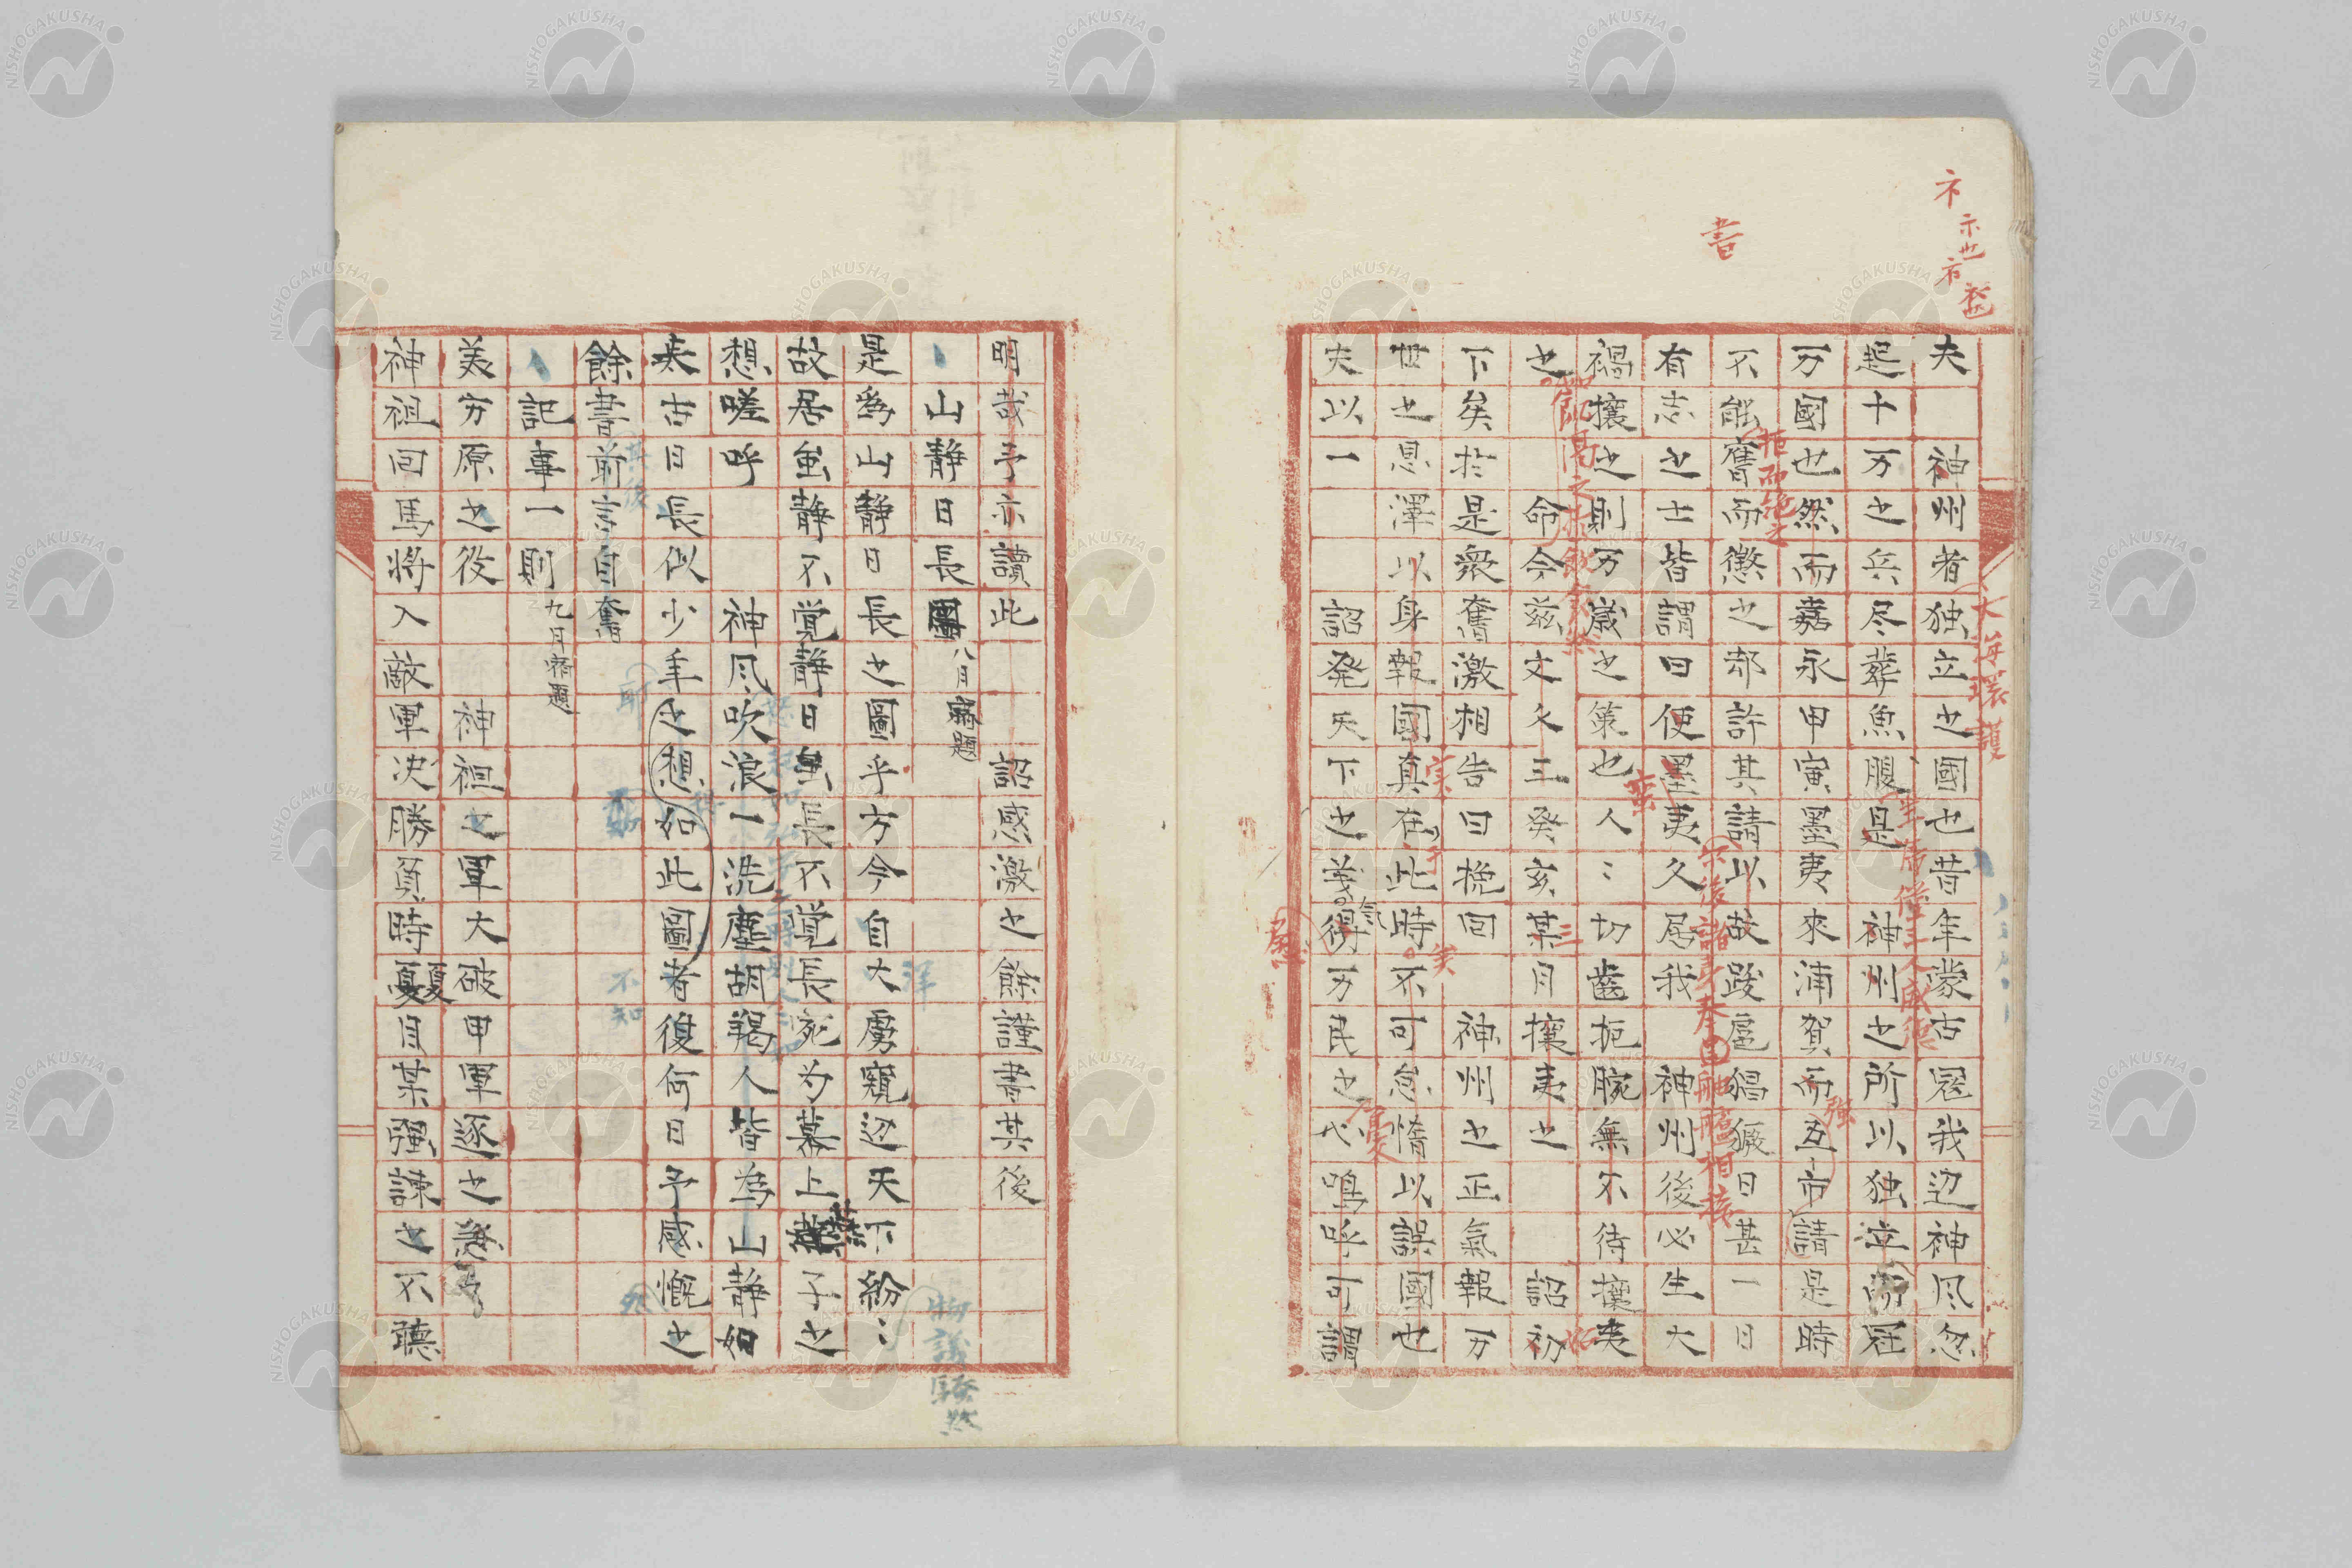 夫 神州者独立之國也昔年蒙古冦我辺神风忽
起十万之兵尽葬魚腹是 神州之所以独立而冠
万國也然而嘉永甲寅墨夷来浦賀而互市請是時
不能奮而懲之却許其請以故跋扈猖獗日甚一日
有志之士皆謂曰使墨夷久居我 神州後必生大
禍攘之則万歳之策也人〻切齒扼腕無不待攘夷
之 命今茲文久三癸亥某月攘夷之 詔初
下矣於是衆奮激相告曰挽回 神州之正氣報万
世之恩澤以身報國真在此時不可怠惰以誤國也
夫以一 詔発天下之義得万民之心嗚呼可謂
明哉予亦讀此 詔感激之餘謹書其後
山静日長圖 八月宿題
是為山静日長之圖乎方今自大虜窺辺天下紛〻
故居虽静不覚静日虽長不覚長宛为幕上燕子之
想嗟呼 神风吹浪一洗塵胡羯人皆為山静如
太古日長似少年之想如此圖者復何日予感慨之
餘書前言自奮
記事一則 九月宿題
美方原之役 神祖之軍大破甲軍逐之急
神祖回馬将入敵軍决勝負時夏目某强諌之不聽
書
大海環護
拒而絶之
舳艫相接
物議騒然
不知
NISHOGAKUSHA